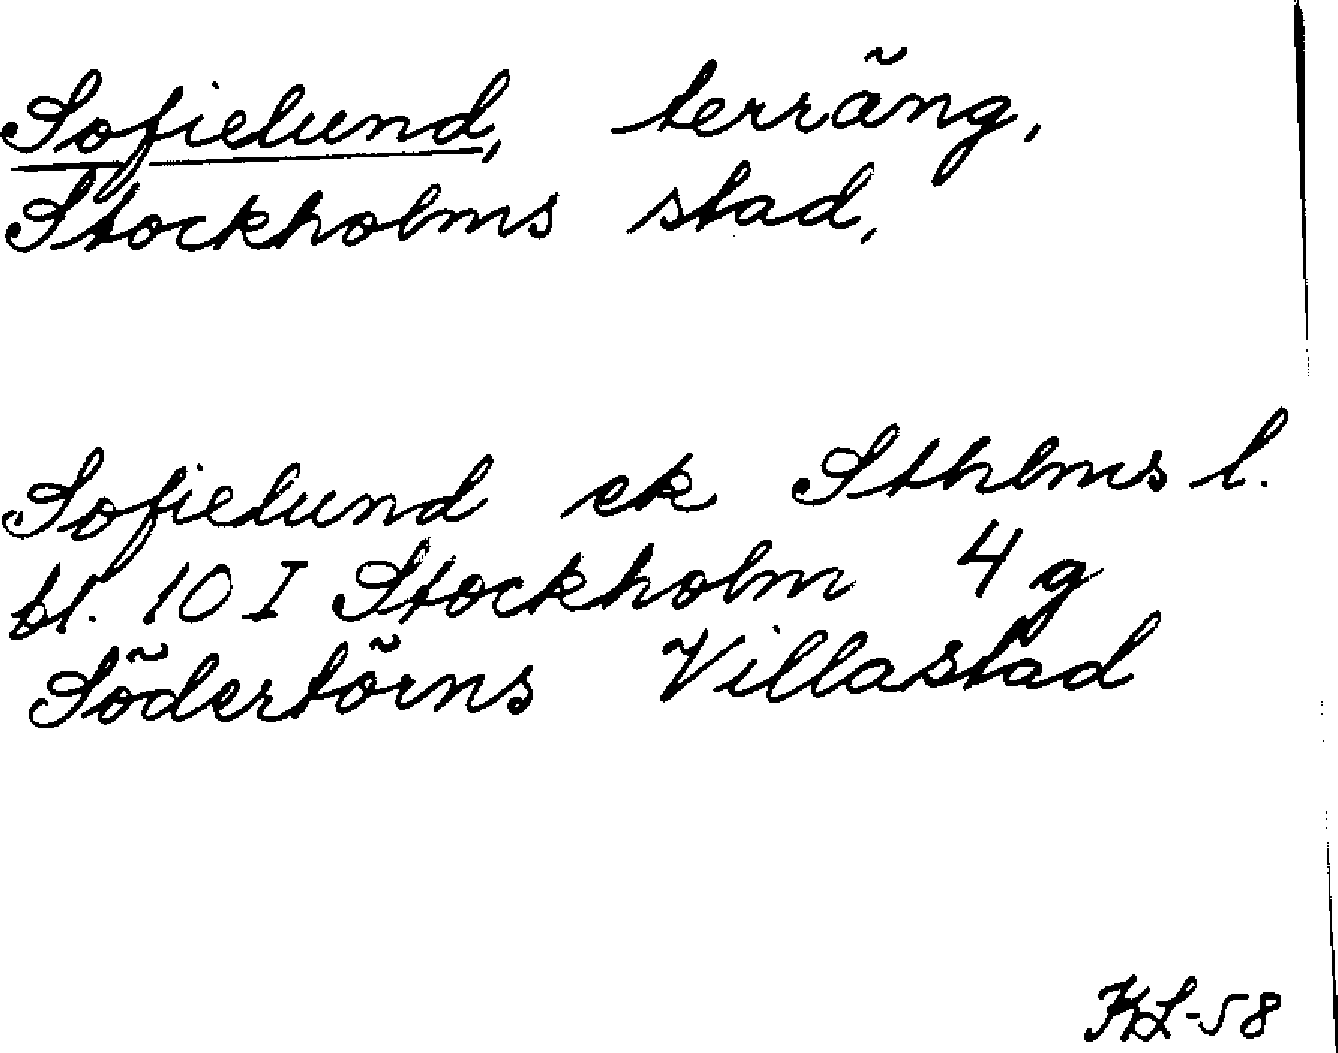 Sofielund, terräng,
Stockholms stad,
Sofielund ek Sthlms l.
bl. 10 I Stockholm 4 g
Södertörns Villastad
KL-58